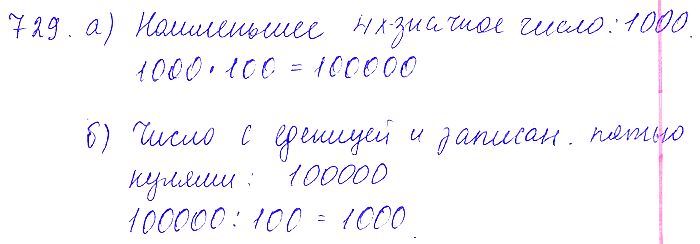 729. а) Наименьшее 4х-значное число: 1000.
1000 · 100 = 100000
б) Число с еденицей и записан. пятью
нулями: 100000
100000 : 100 = 1000